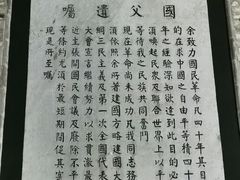 國父遺囑
余致力國民革命凡四十年其目
的在求中國之自由平等積四十
年之經驗深知欲達到此目的必
須喚起民眾及聯合世界上以平
等待我之民族共同奮鬥
現在革命尚未成功凡我同志務
須依照余所著建國方略建國大
綱三民主義及第一次全國代表
大會宣言繼續努力以求貫澈最
近主張開國民會議及廢除不平
等條約尤須於最短期間促其實
現是所至囑